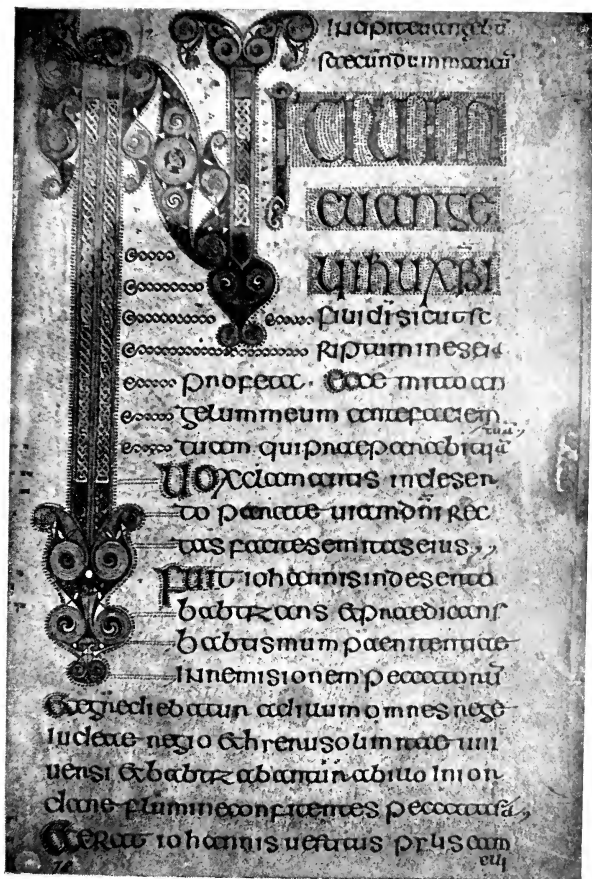 Incipit euangelū
secundum marcū
INITIUM
EUANGE
LII IHU XPI
FILII DI SICUT SC
RIPTUM IN ESEIA
profeta · Ecce mitto an
gelum meum ante faciem
tuā,,
tuam qui praeparabit uiā
UOX clamantis in deser
to parate uiam dn̄i rec
tas facite semitas eius,,
FUIT iohannis in deserto
babtizans & praedicans
babtismum paenitentiae
in remisionem peccatorū
& egrediebatur ad illum omnes
Iudeae regio & hierusolimitae uni
uersi & babtizabantur ab illo in ior
dane flumine confitentes peccata sā,,
& ERAT iohannis uestitus pilis cam
eli